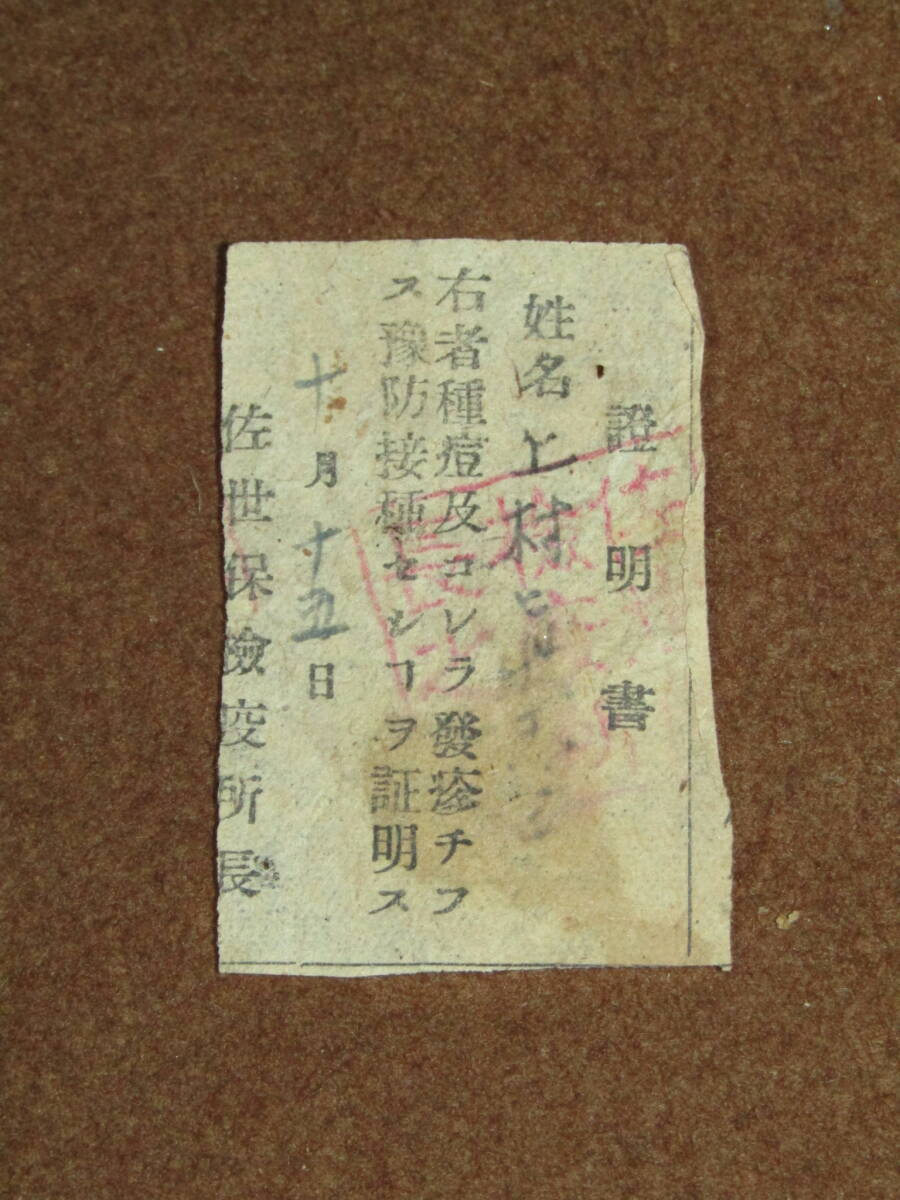 證明書
姓名 上村
右者種痘及コレラ發疹チフ
ス豫防接種セシヿヲ証明ス
十月十五日
佐世保檢疫所長